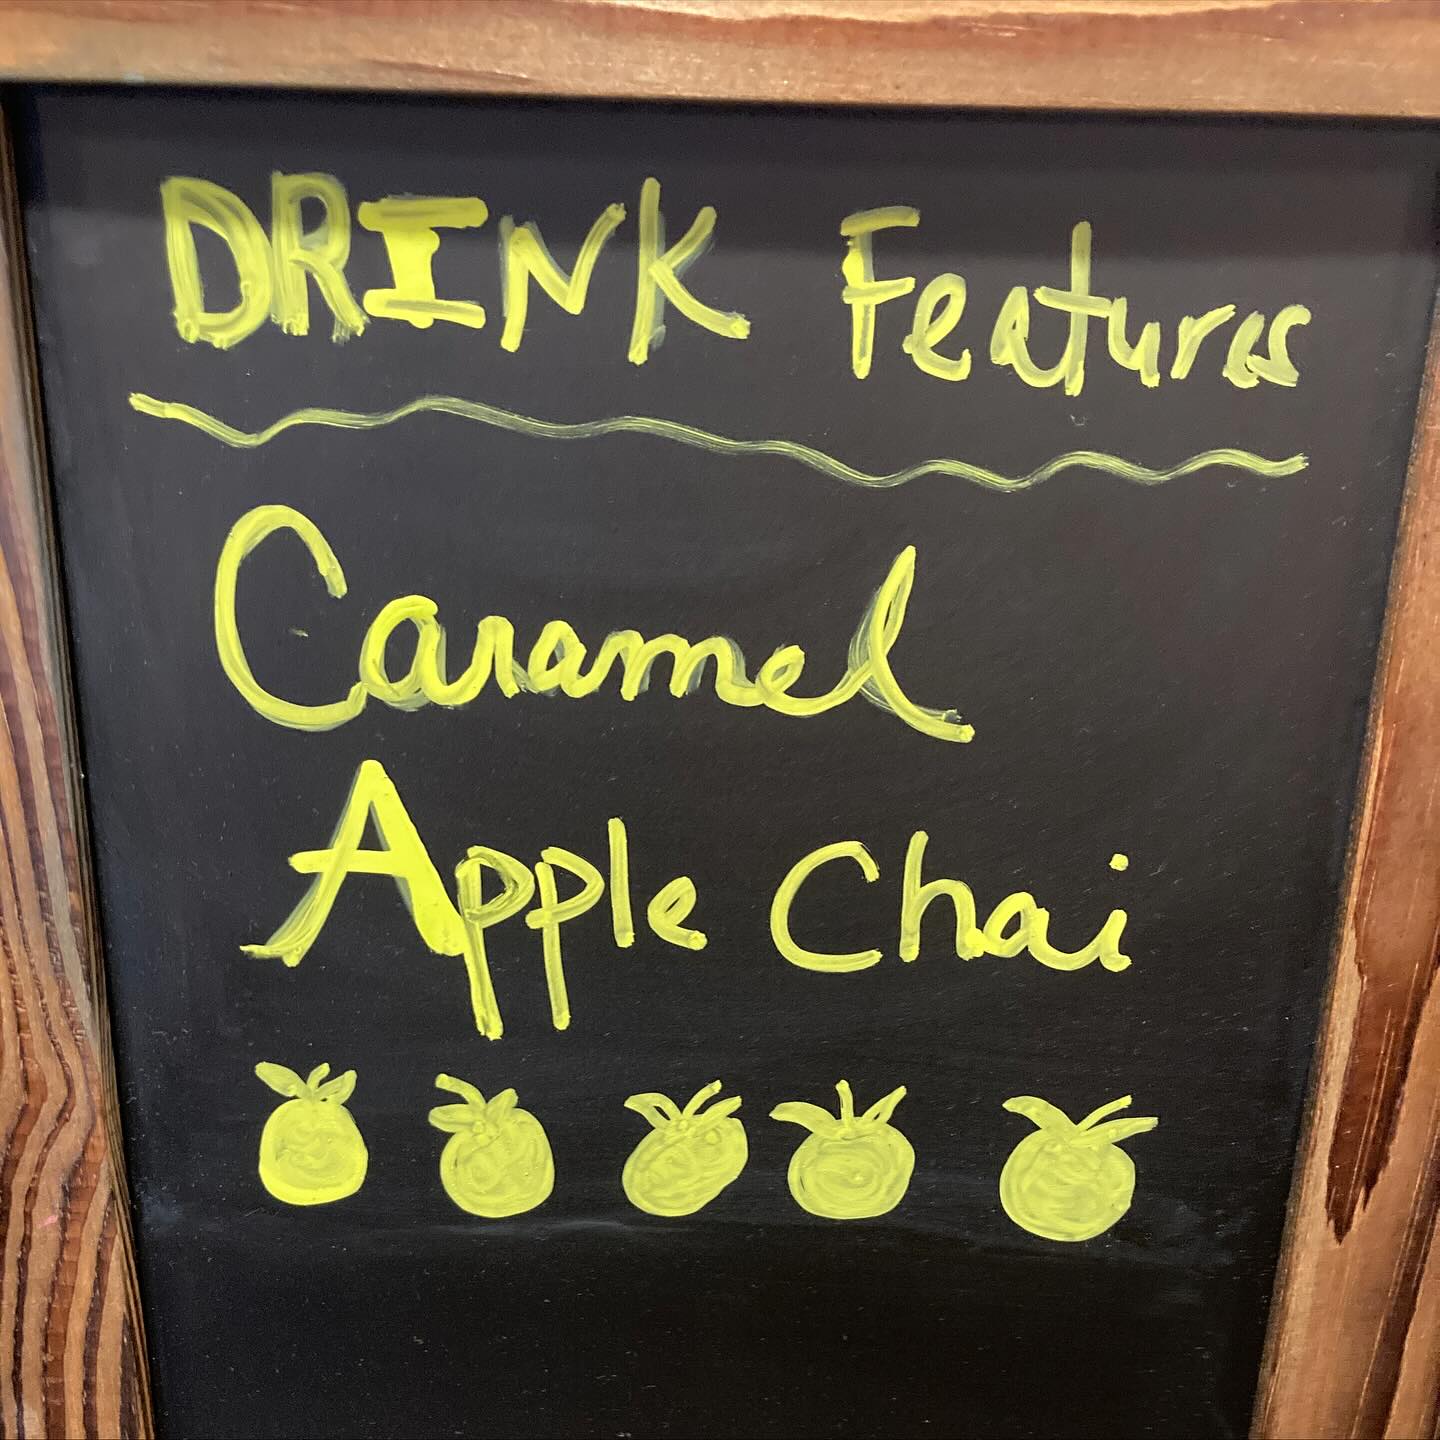 DRINK Features
Caramel
Apple Chai